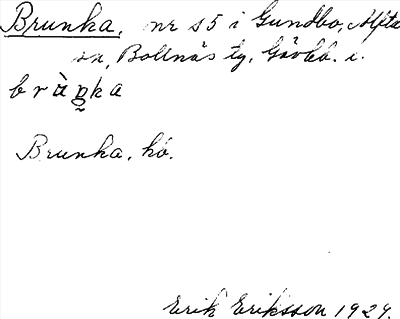 Brunka, nr 15 i Gundbo, Alfta
sn, Bollnäs tg, Gävleb. l.
bràŋka
Brunka, ko.
Erik Eriksson 1929.